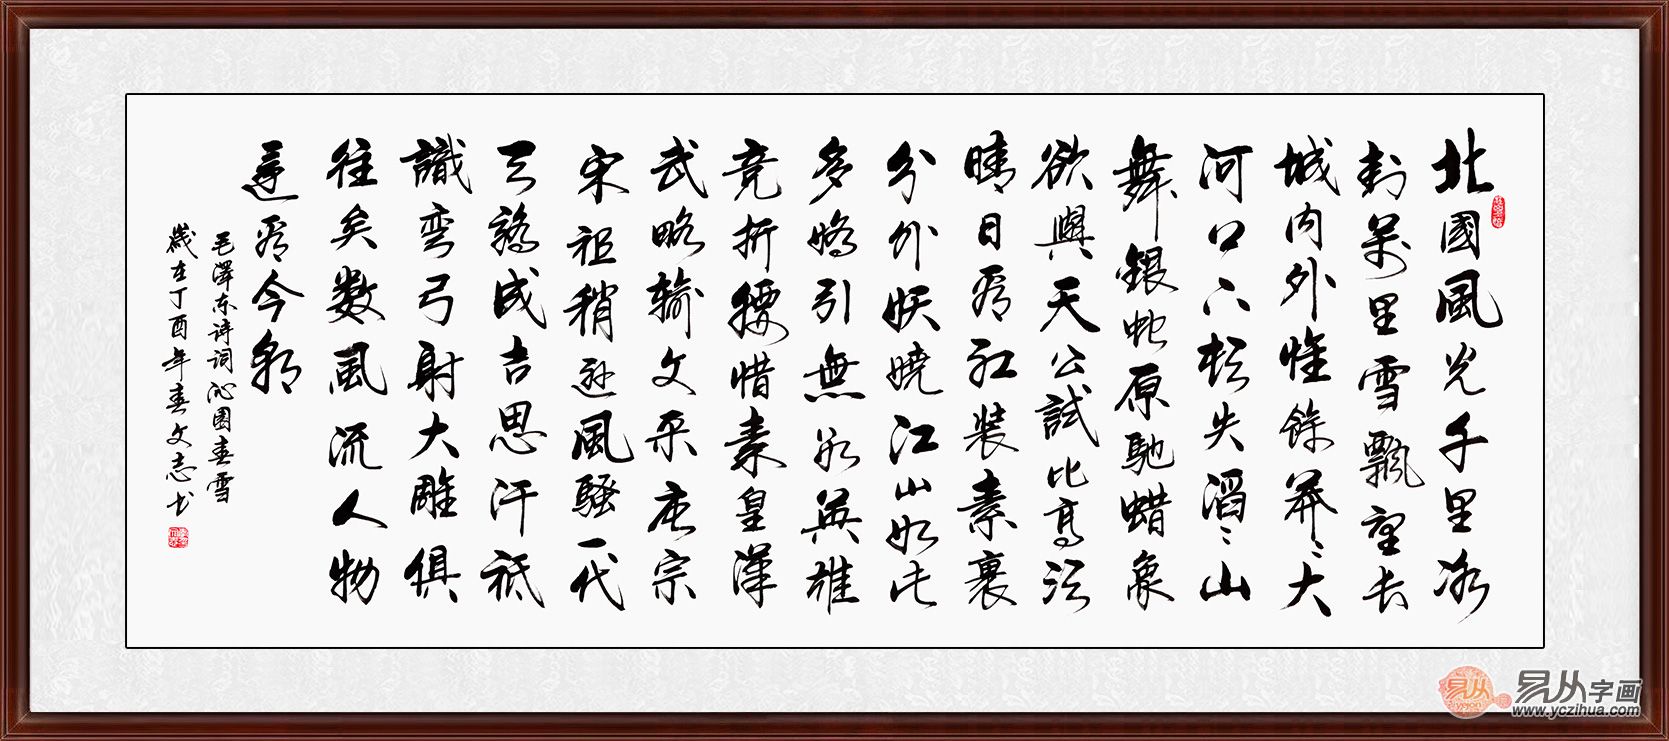 北國風光千里冰
封萬里雪飄望長
城内外惟餘莽々大
河上下頓失滔々山
舞銀蛇原馳蜡象
欲與天公試比高須
晴日看紅装素裹
分外妖嬈江山如此
多嬌引無数英雄
竞折腰惜秦皇漢
武略輸文采唐宗
宋祖稍遜風騷一代
天驕成吉思汗祇
識彎弓射大雕俱
往矣数風流人物
還看今朝
毛澤东诗词沁園春雪
歲在丁酉年春文志书
易从 yejon 易从字画
www.yczihua.com